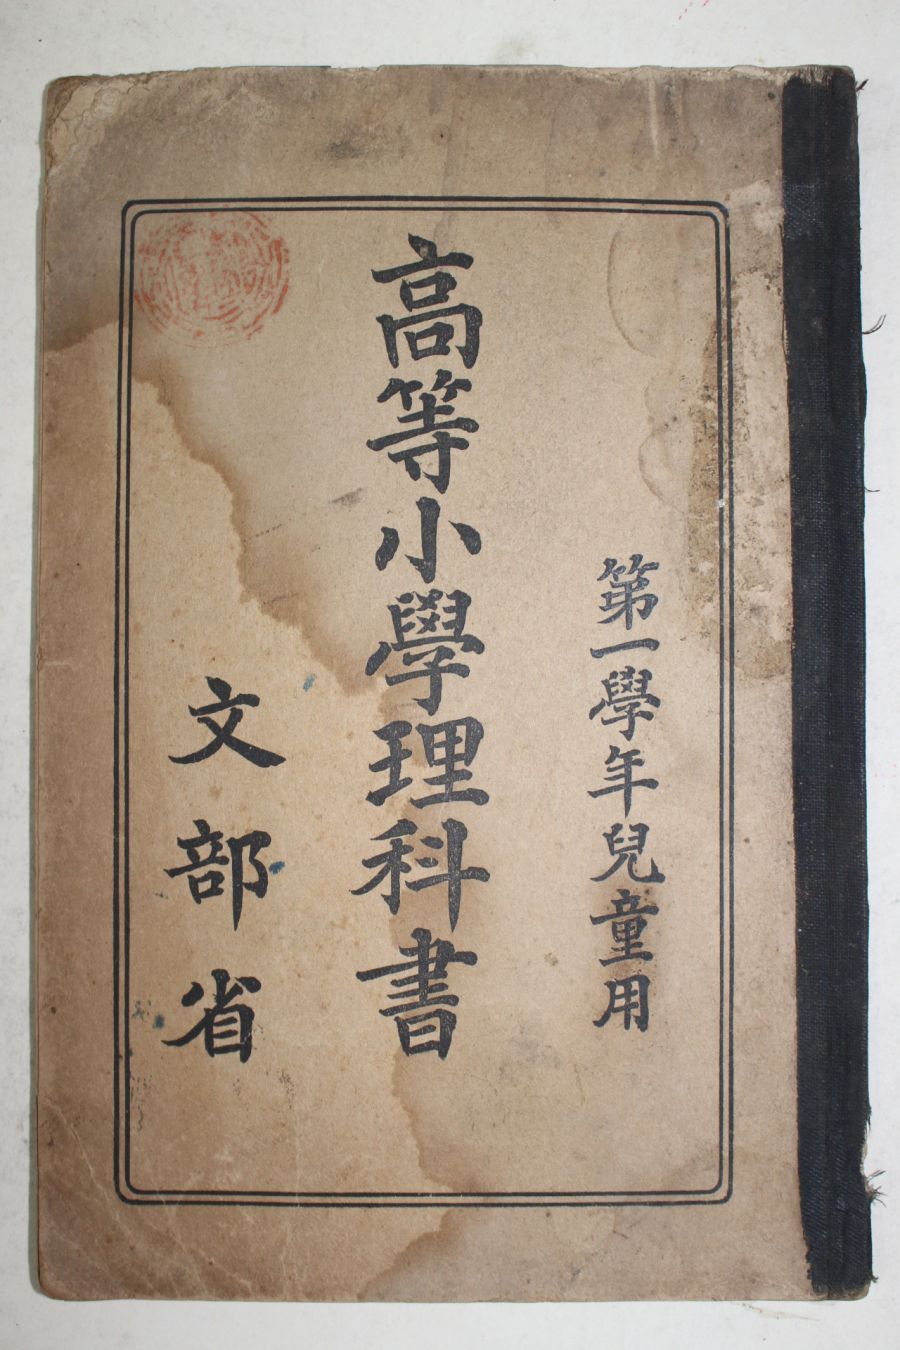 第一學年兒童用
高等小學理科書
文部省